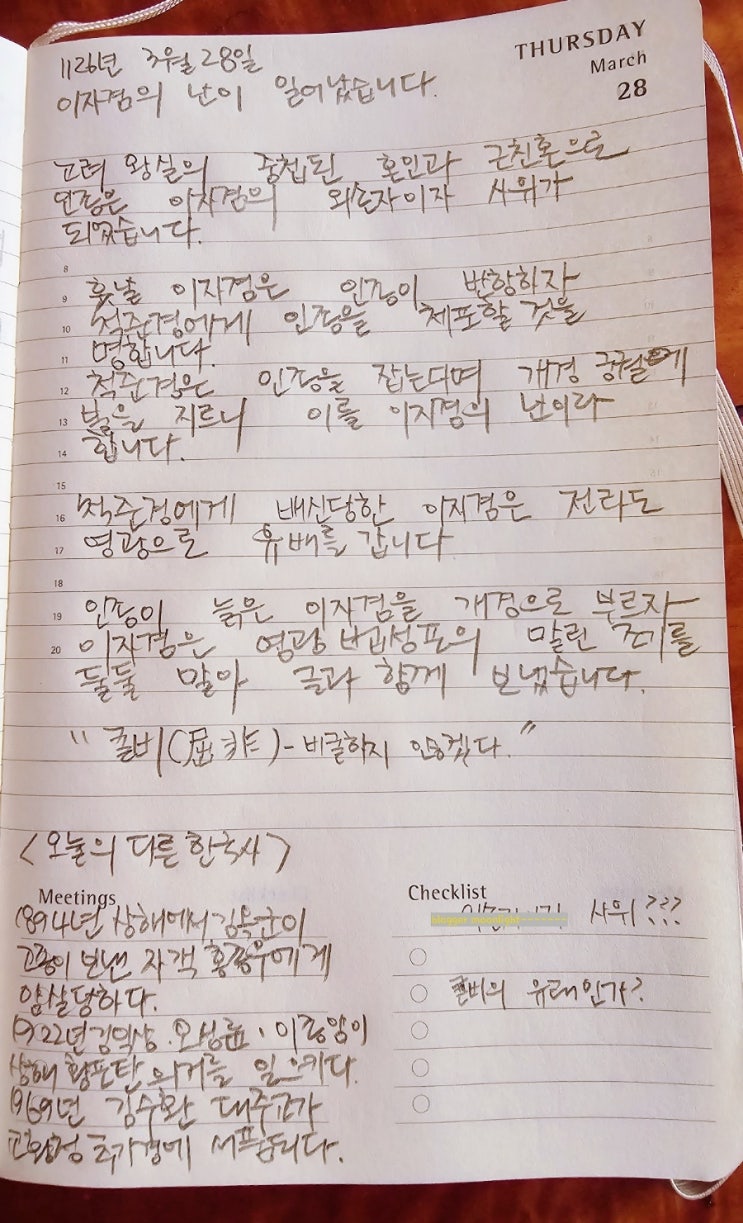 THURSDAY
March
28
1126년 3월 28일
이자겸의 난이 일어났습니다.
고려 왕실의 중첩된 혼인과 근친혼으로
인종은 이자겸의 외손자이자 사위가
되었습니다.
8
9 훗날 이자겸은 인종이 반항하자
10 척준경에게 인종을 체포할 것을
11 명합니다.
12 척준경은 인종을 잡는다며 개경 궁궐에
13 불을 지르니 이를 이자겸의 난이라
14 합니다.
15
16 척준경에게 배신당한 이자겸은 전라도
17 영광으로 유배를 갑니다
18
19 인종이 늙은 이자겸을 개경으로 부르자
20 이자겸은 영광 법성포의 말린 조기를
둘둘 말아 글과 함께 보냈습니다.
"굴비(屈非)-비굴하지 않겠다."
<오늘의 다른 한국사>
Meetings
1894년 상해에서 김옥균이
고종이 보낸 자객 홍종우에게
암살당하다.
1922년 김익상·오성륜·이종암이
상해 황포탄 의거를 일으키다.
1969년 김수환 대주교가
교황청 추기경에 서품되다.
Checklist
사위???
blogger moonlight
굴비의 유래인가?